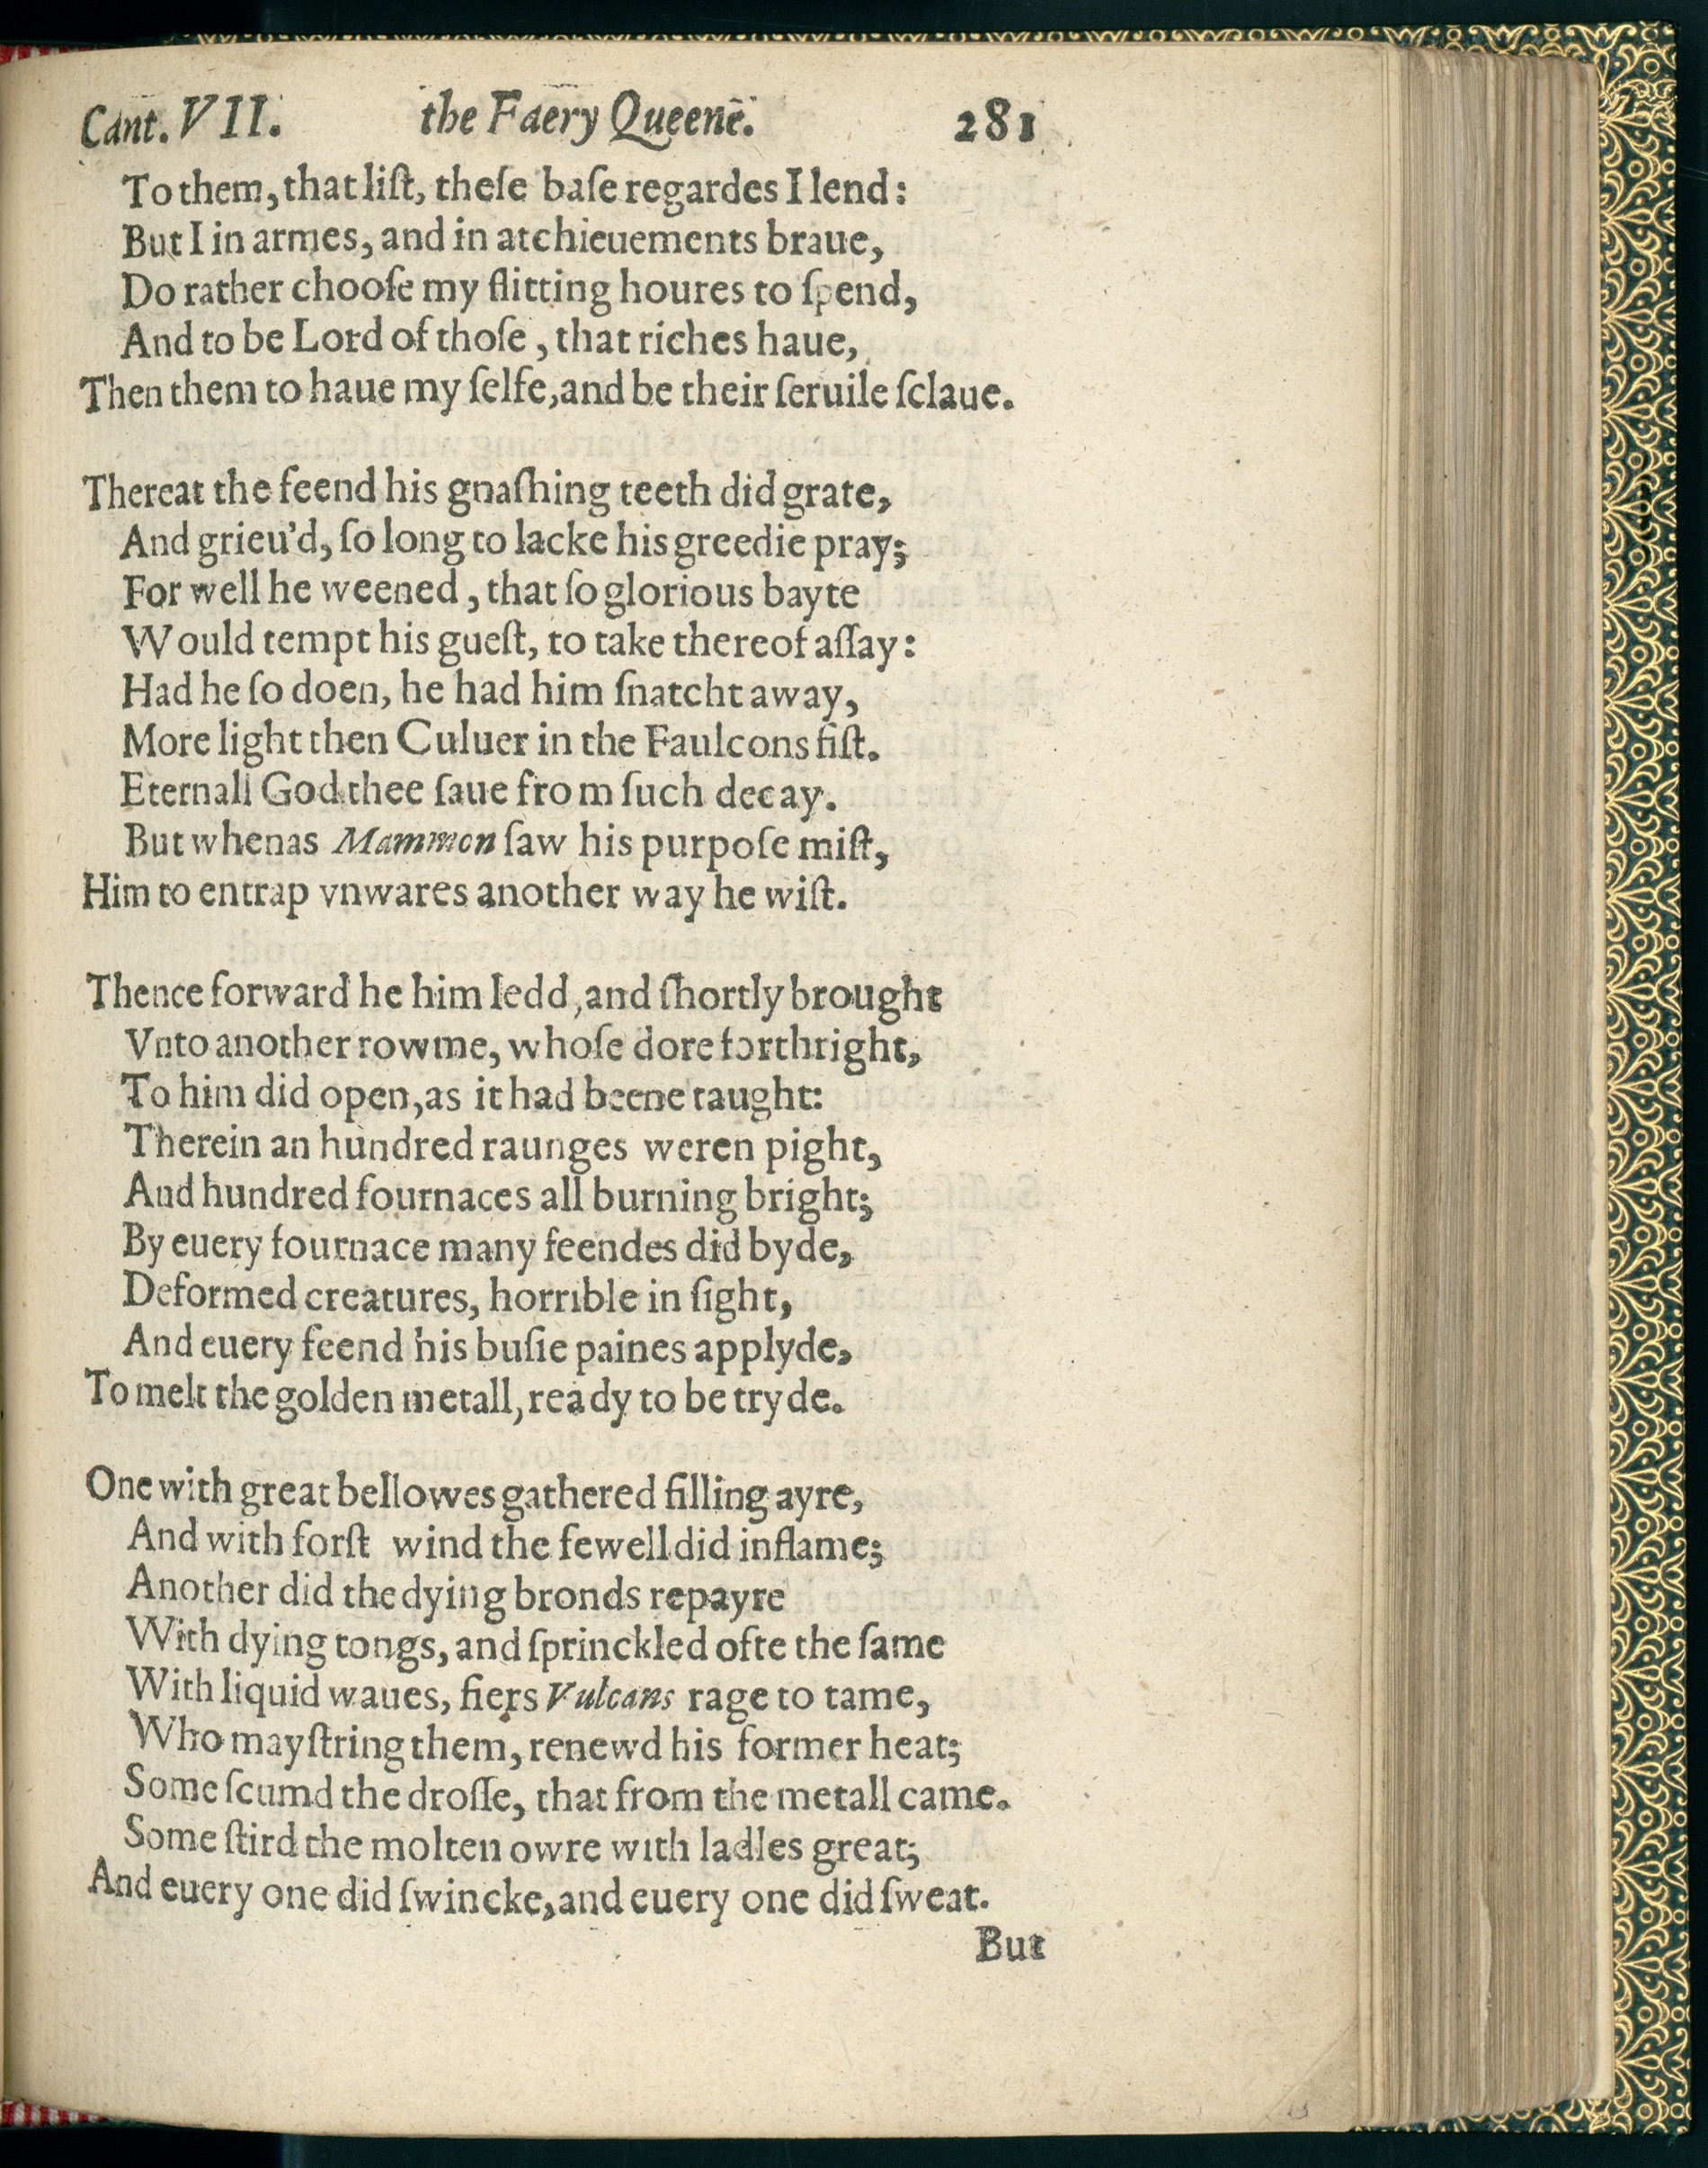 Cant. VII. the Faery Queene. 281
To them, that liſt, theſe baſe regardes I lend:
But I in armes, and in atchieuements braue,
Do rather chooſe my flitting houres to ſpend,
And to be Lord of thoſe, that riches haue,
Then them to haue my ſelfe, and be their ſeruile ſclaue.
Thereat the feend his gnaſhing teeth did grate,
And grieu'd, ſo long to lacke his greedie pray;
For well he weened, that ſo glorious bayte
Would tempt his gueſt, to take thereof aſſay:
Had he ſo doen, he had him ſnatcht away,
More light then Culuer in the Faulcons fiſt.
Eternall God thee ſaue from ſuch decay.
But whenas Mammon ſaw his purpoſe miſt,
Him to entrap vnwares another way he wiſt.
Thence forward he him ledd, and ſhortly brought
Vnto another rowme, whoſe dore forthright,
To him did open, as it had beene taught:
Therein an hundred raunges weren pight,
And hundred fournaces all burning bright;
By euery fournace many feendes did byde,
Deformed creatures, horrible in ſight,
And euery feend his buſie paines applyde,
To melt the golden metall, ready to be tryde.
One with great bellowes gathered filling ayre,
And with forſt wind the fewell did inflame;
Another did the dying bronds repayre
With dying tongs, and ſprinckled ofte the ſame
With liquid waues, fiers Vulcans rage to tame,
Who mayſtring them, renewd his former heat;
Some ſcumd the droſſe, that from the metall came.
Some ſtird the molten owre with ladles great;
And euery one did ſwincke, and euery one did ſweat.
But